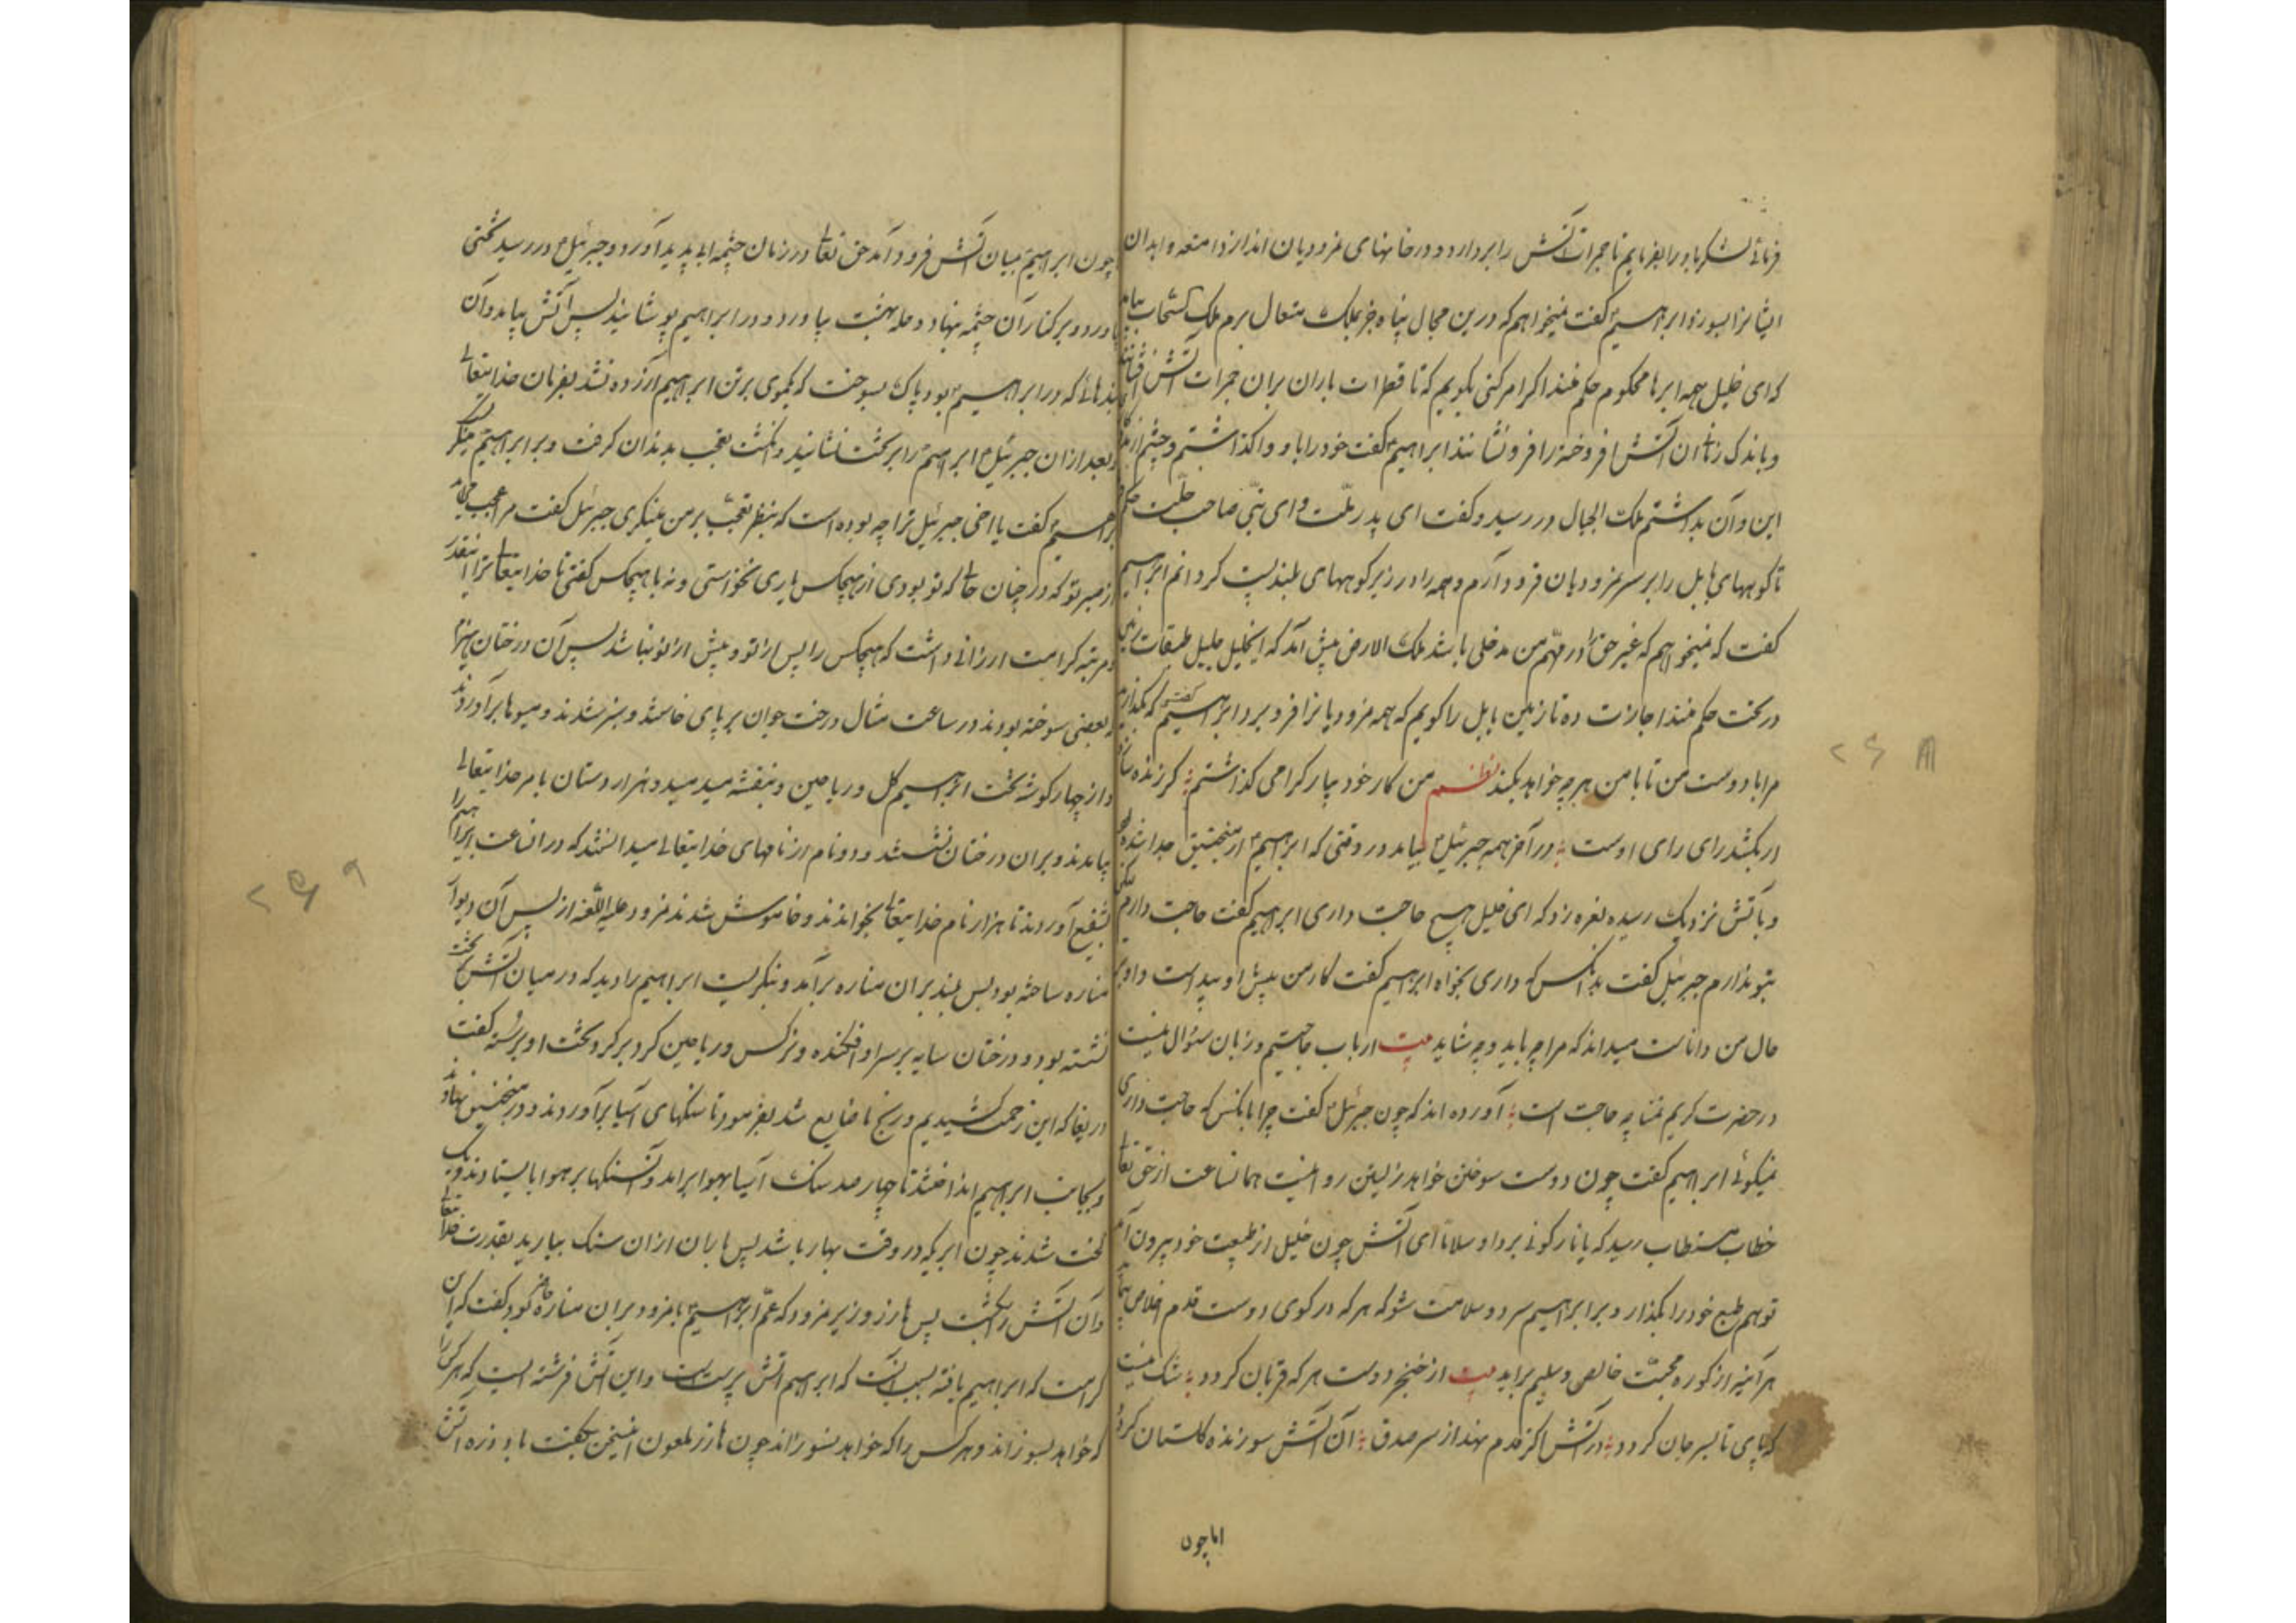 فرمائی لشکر باد را بفرمایم تا جمرات آتش را بردارد و در خانهای نمرودیان اندازد امتعه و ابدان
ایشانرا بسوزد ابراهیم گفت نمیخواهم که درین مجال پناه جز بملک متعال برم ملک سحاب بیامد
که ای خلیل همه ابرها محکوم حکم منند اگر امر کنی بگویم که تا قطرات باران بران جمرات آتش افشانند
و باندک زمان آن آتش افروخته را فرو نشانند ابراهیم گفت خود را باو واگذاشتم و چشم از
این و آن برداشتم ملک الجبال در رسید و گفت ای پدر ملت و ای نبی صاحب خلت حکم
تا کوههای بابل را بر سر نمرودیان فرود آرم و همه را در زیر کوههای بلند پست گردانم ابراهیم
گفت که نمیخواهم که غیر حق را در مهم من مدخلی باشد ملک الارض پیش آمد که ای خلیل جلیل طبقات زمین
در تحت حکم منند اجازت ده تا زمین بابل را گویم که همه نمرودیانرا فرو برد ابراهیم گفت که بگذارید
مرا با دوست من تا با من هرچه خواهد بکند نظم من کار خود بیار گرامی گذاشتم گر زنده سازد
ار بکشد رای رای اوست در آخر همه جبرئیل بیامد در وقتی که ابراهیم از منجنیق جدا شده بود
و بآتش نزدیک رسیده نعره زد که ای خلیل هیچ حاجت داری ابراهیم گفت حاجت دارم لیکن
بتو ندارم جبرئیل گفت بدانکس که داری بخواه ابراهیم گفت کار من پیش او پیداست و او بر
حال من داناست میداند که مرا چه باید و چه شاید بیت ارباب حاجتیم و زبان سؤال نیست
در حضرت کریم تمنا چه حاجت است آورده اند که چون جبرئیل گفت چرا بآنکس که حاجت داری
نمیگوئی ابراهیم گفت چون دوست سوختن خواهد نالیدن روا نیست همان ساعت از حق تعالی
خطاب مستطاب رسید که یا نار کونی بردا و سلاما ای آتش چون خلیل از طبیعت خود بیرون آمد
تو هم طبع خود را بگذار و بر ابراهیم سرد و سلامت شو که هر که در کوی دوست قدم اخلاص نهاد
هر آینه از کوره محبت خالص و سلیم برآید بیت از خنجر دوست هر که قربان گردد شک نیست
که پای تا بسر جان گردد در آتش اگر قدم نهد از سر صدق آن آتش سوزنده گلستان گردد
اما چون
چون ابراهیم بمیان آتش فرود آمد حق تعالی در زمان چشمه ابی پدید آورد و جبرئیل در رسید تختی
بیاورد و بر کنار آن چشمه بنهاد و حله بهشت بیاورد و در ابراهیم پوشانید پس آتش بیامد و آن
بندهائی که بر ابراهیم بود پاک بسوخت که یکموی بر تن ابراهیم آزرده نشد بفرمان خدایتعالی
و بعد ازان جبرئیل ابراهیم را بر تخت نشانید و انگشت تعجب بدندان گرفت و بر ابراهیم مینگریست
ابراهیم گفت یا اخی جبرئیل ترا چه بوده است که بنظر تعجب بر من مینگری جبرئیل گفت مرا عجب می آید
از صبر تو که در چنان حالی که تو بودی از هیچکس یاری نخواستی و نه با هیچکس گفتی تا خدایتعالی ترا اینقدر
و مرتبه کرامت ارزانی داشت که هیچکس را پس از تو و پیش از تو نباشد پس آن درختان هیزم
که بعضی سوخته بودند در ساعت مثال درخت جوان بر پای خاستند و سبز شدند و میوها برآوردند
و از چهار گوشه تخت ابراهیم گل و ریاحین و بنفشه میدمید و هزار دستان بامر خدایتعالی
بیامدند و بران درختان نشستند و دو نام از نامهای خدایتعالی میدانستند که در انساعت ابراهیم را
بشفیع آوردند تا هزار نام خدایتعالی بخواندند و خاموش شدند نمرود علیه اللعنه از پس آن دیوار
مناره ساخته بود بس بلند بران مناره برآمد و بنگریست ابراهیم را دید که در میان آتش بر تخت
نشسته بود و درختان سایه بر سر او افکنده و نرگس و ریاحین گرد بر گرد تخت او بر رسته گفت
دریغا که این زحمت کشیدیم و رنج ما ضایع شد بفرمود تا سنگهای آسیا برآوردند و در منجنیق نهادند
و بجانب ابراهیم انداختند تا چهارصد سنگ آسیا بهوا برآمد و آن سنگها بر هوا بایستادند و یک
لخت شدند چون ابریکه در وقت بهار باشد پس باران ازان سنگ ببارید بقدرت خدایتعالی
و آن آتش را بکشت پس هارز وزیر نمرود که عم ابراهیم با نمرود بران مناره حاضر بود گفت که این
کرامت که ابراهیم یافته بسبب آنست که ابراهیم آتش پرست است و این آتش فرشته ایست که هر کرا
که خواهد بسوزاند و هر کس را که خواهد نسوزاند چون هارز ملعون این سخن بگفت باد ذره آتش